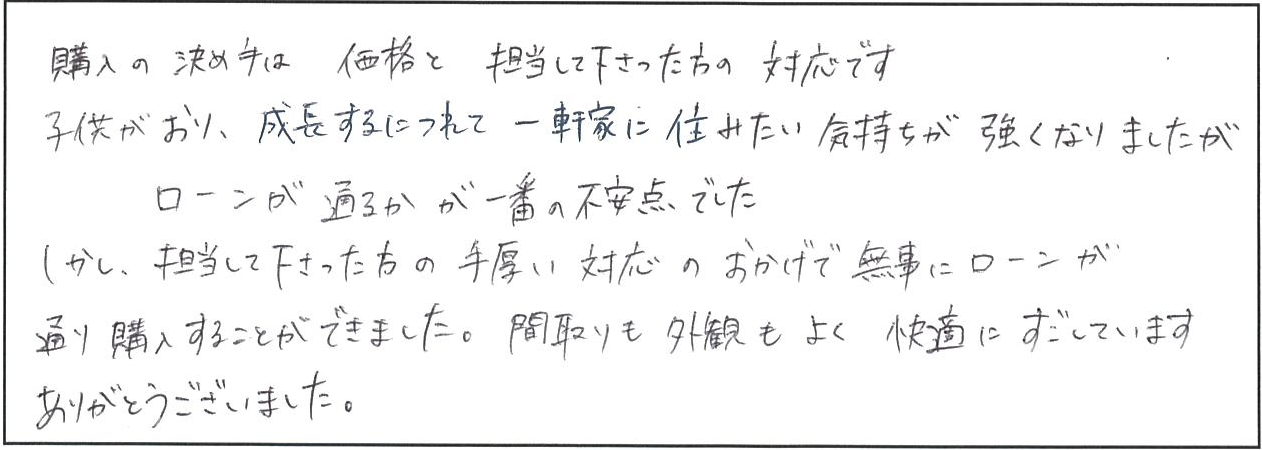 購入の決め手は 価格と 担当して下さった方の 対応です
子供がおり、成長するにつれて 一軒家に 住みたい 気持ちが 強くなりましたが
ローンが 通るか が 一番の不安点でした
しかし、担当して下さった方の 手厚い 対応 の おかげで 無事にローンが
通り 購入することができました。間取りも 外観も よく 快適に すごしています
ありがとうございました。